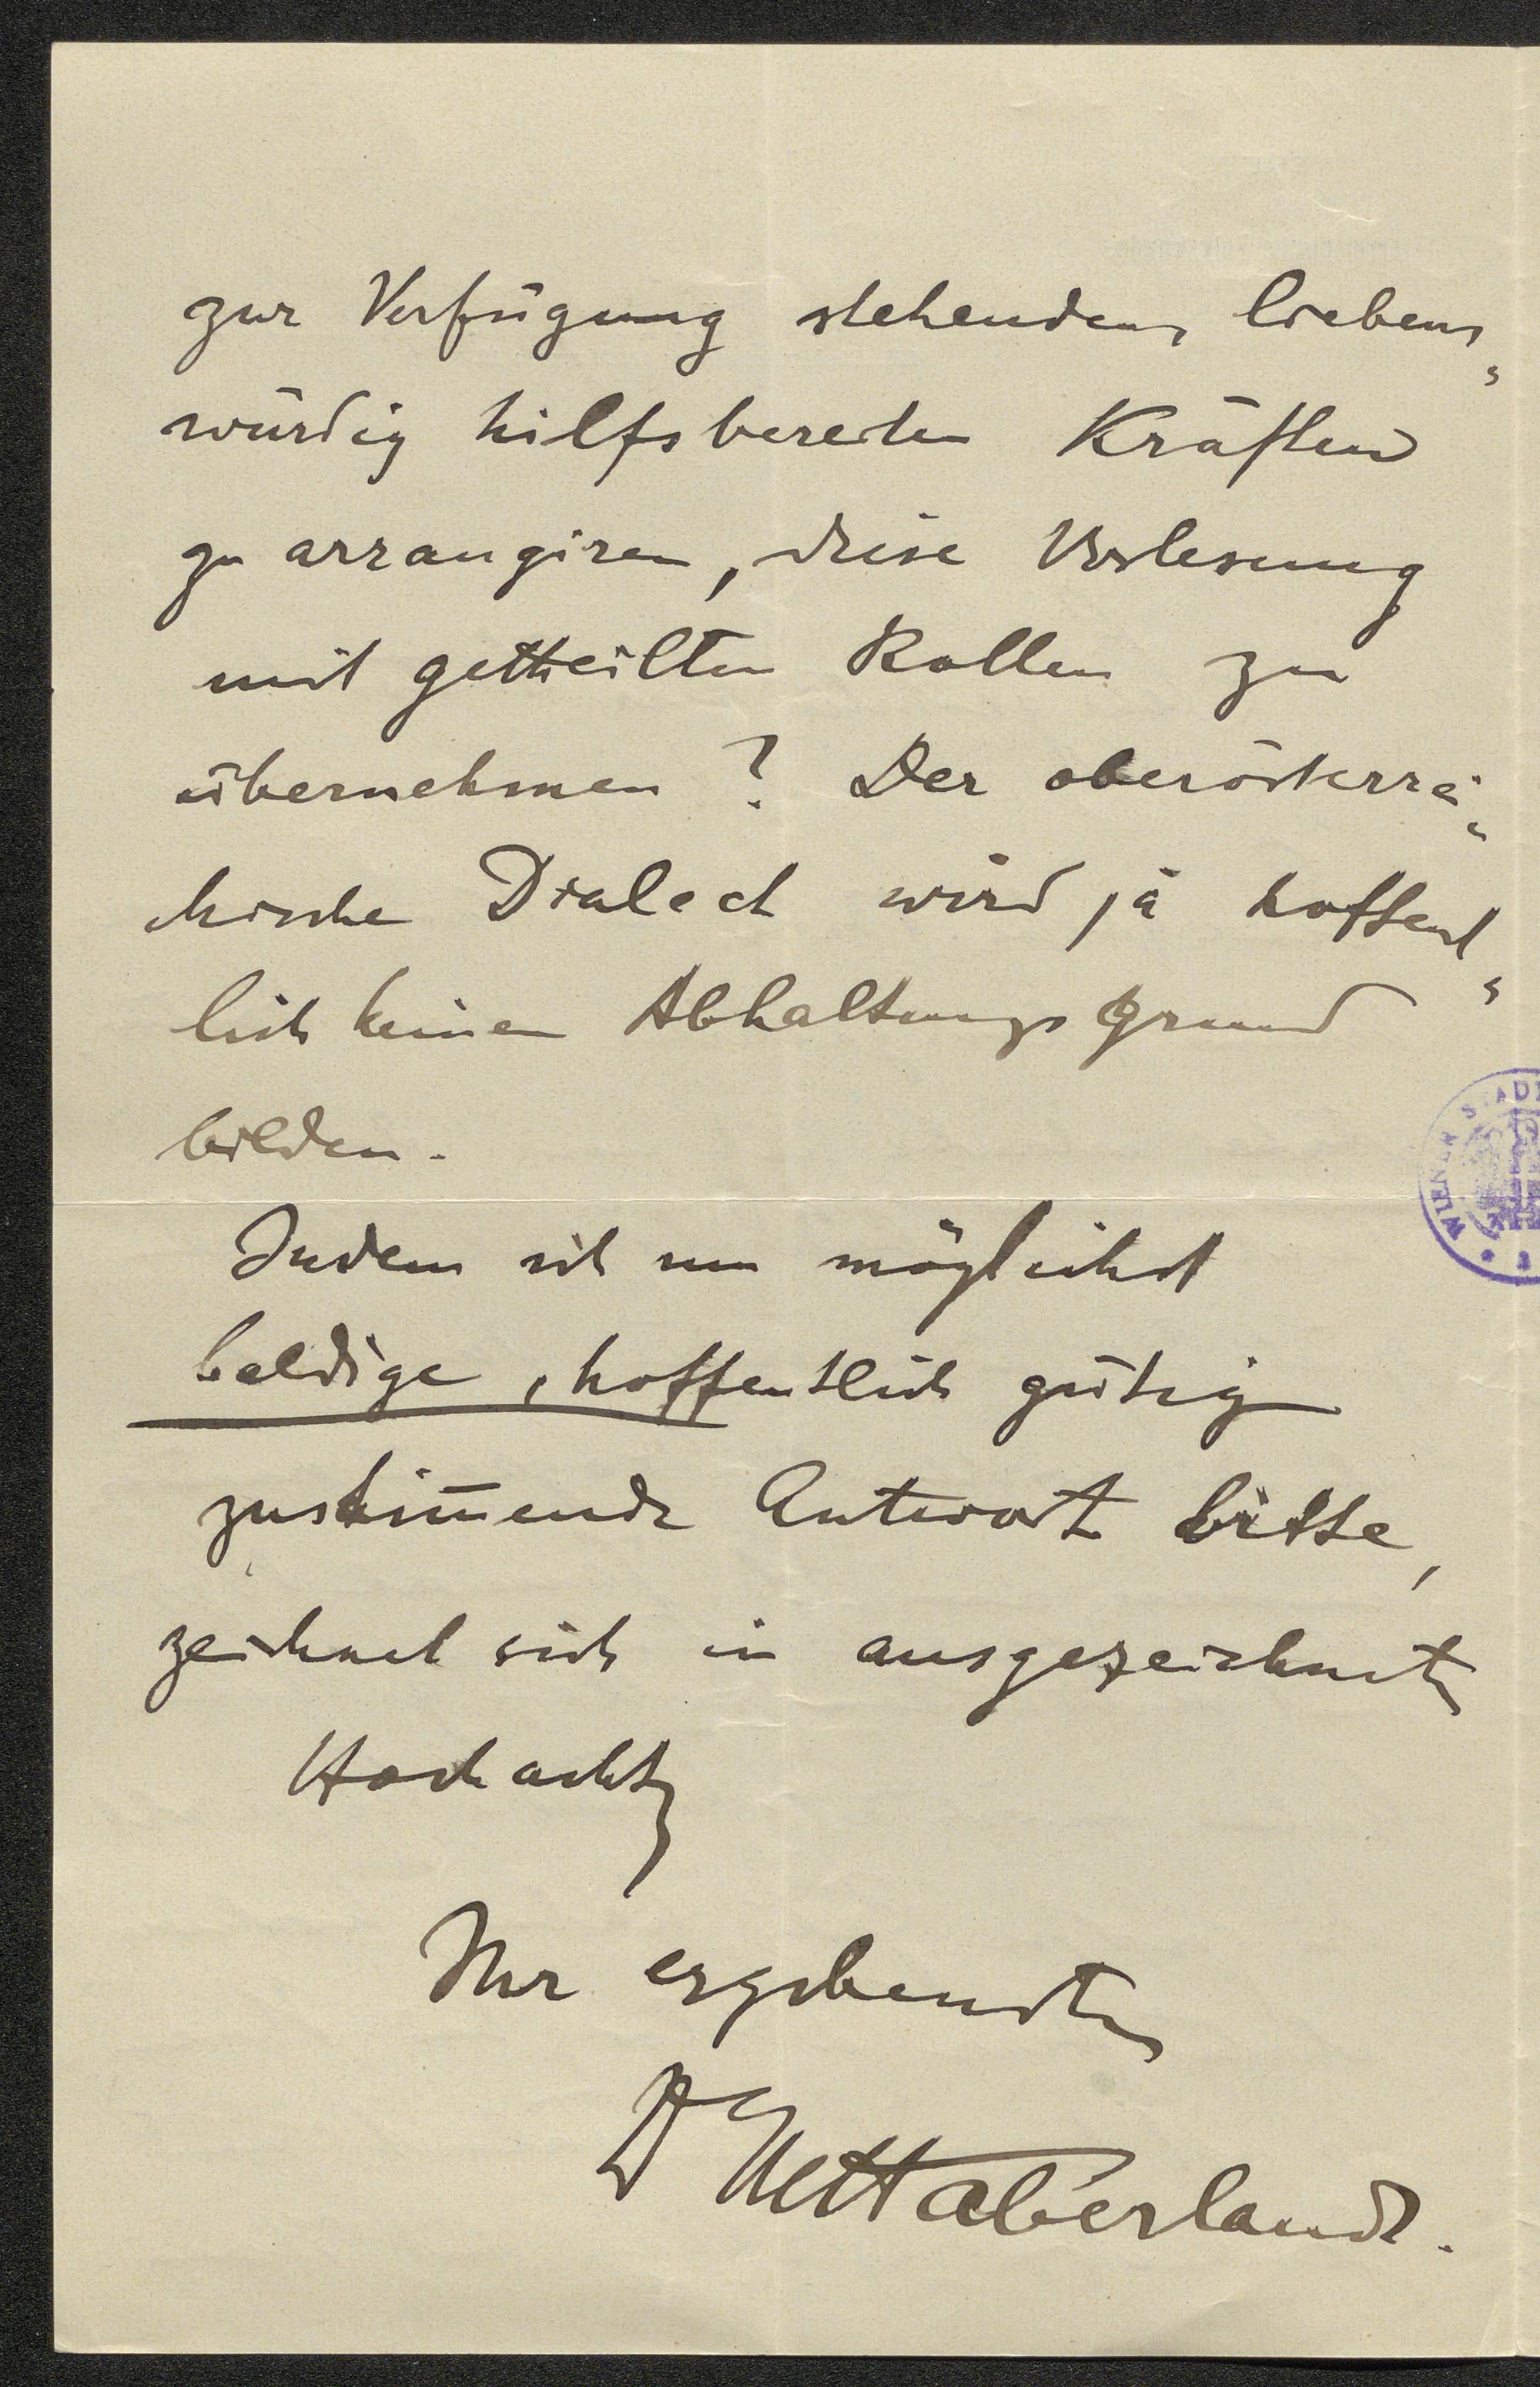 zur Verfügung stehenden liebens„
würdig hilfsbereiten Kräften
zu arrangiren, diese Vorlesung
mit getheilten Rollen zu
übernehmen? Der oberösterrei„
chische Dialect wird ja hoffent„
lich keinen Abhaltungsgrund
bilden.
WIENER STADT
Indem ich um möglichst
baldige, hoffentlich gütig
zustim̄ende Antwort bitte,
zeichnet sich in ausgezeichneter
Hochachtg
Ihr ergebenster
Dr M Haberlandt.